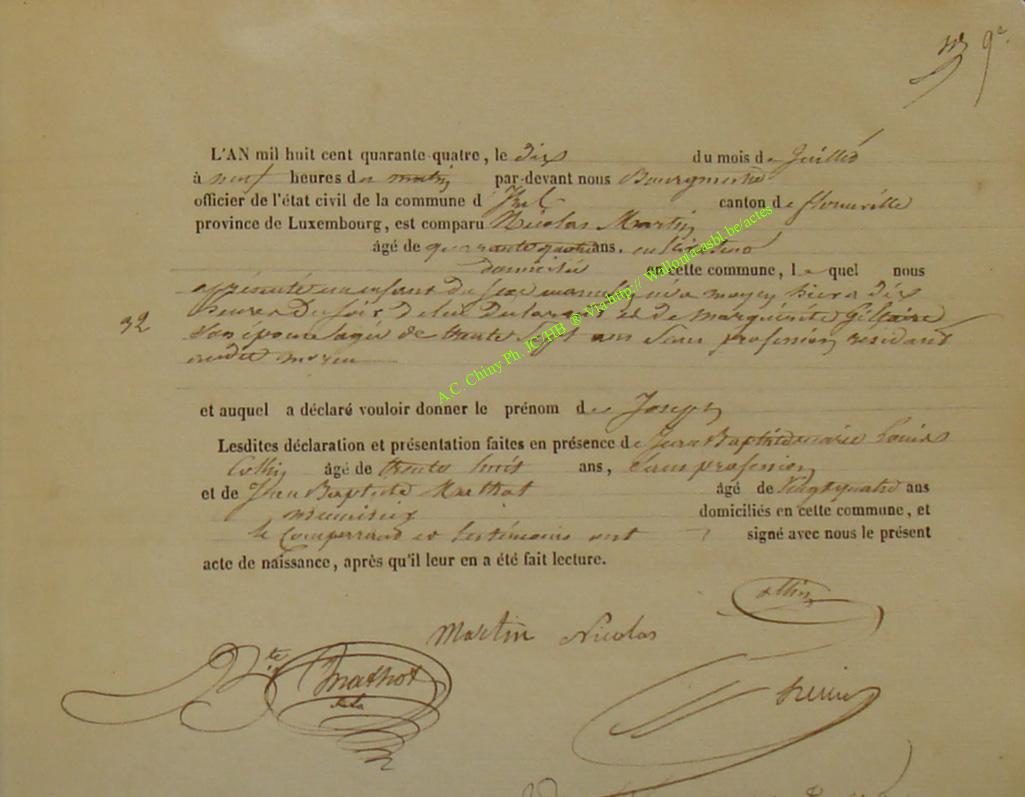 9e
L'AN mil huit cent quarante-quatre, le dix du mois de Juillet
à neuf heures du matin par-devant nous Bourgmestre
officier de l'état civil de la commune d'Izel canton de florenville
province de Luxembourg, est comparu Nicolas Martin
âgé de quarante quatre ans. cultivateur
domicilié en cette commune, lequel nous
a présenté un enfant du sexe masculin né a moyen hier a dix
heures du soir de lui declarant et de Marguerite Gillaire
32
Son épouse agée de trente Sept ans Sans profession residant
audit moyen
et auquel a déclaré vouloir donner le prénom de Joseph
Lesdites déclaration et présentation faites en présence de Jean Baptiste marie Louis
Collin âgé de trente huit ans, Sans profession
et de Jean Baptiste Mathot âgé de vingt quatre ans
domiciliés en cette commune, et
le Comparrant et les témoins ont signé avec nous le présent
acte de naissance, après qu'il leur en a été fait lecture.
Collin
Martin Nicolas
Bte Mathot
A.C. Chiny Ph. JC/HB @ Via http:// Wallonia-asbl.be/actes